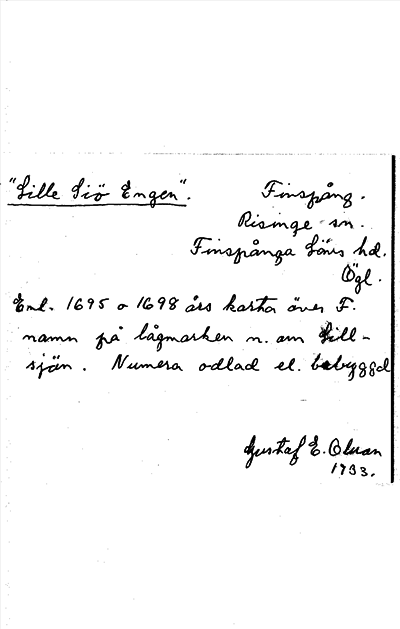 "Lille Siö Engen". Finspång.
Risinge sn.
Finspånga läns hd.
Ögl.
Enl. 1695 o 1698 års karta över F.
namn på lågmarken n. om Lill-
sjön. Numera odlad el. bebyggd
Gustaf E. Olsson
1933.